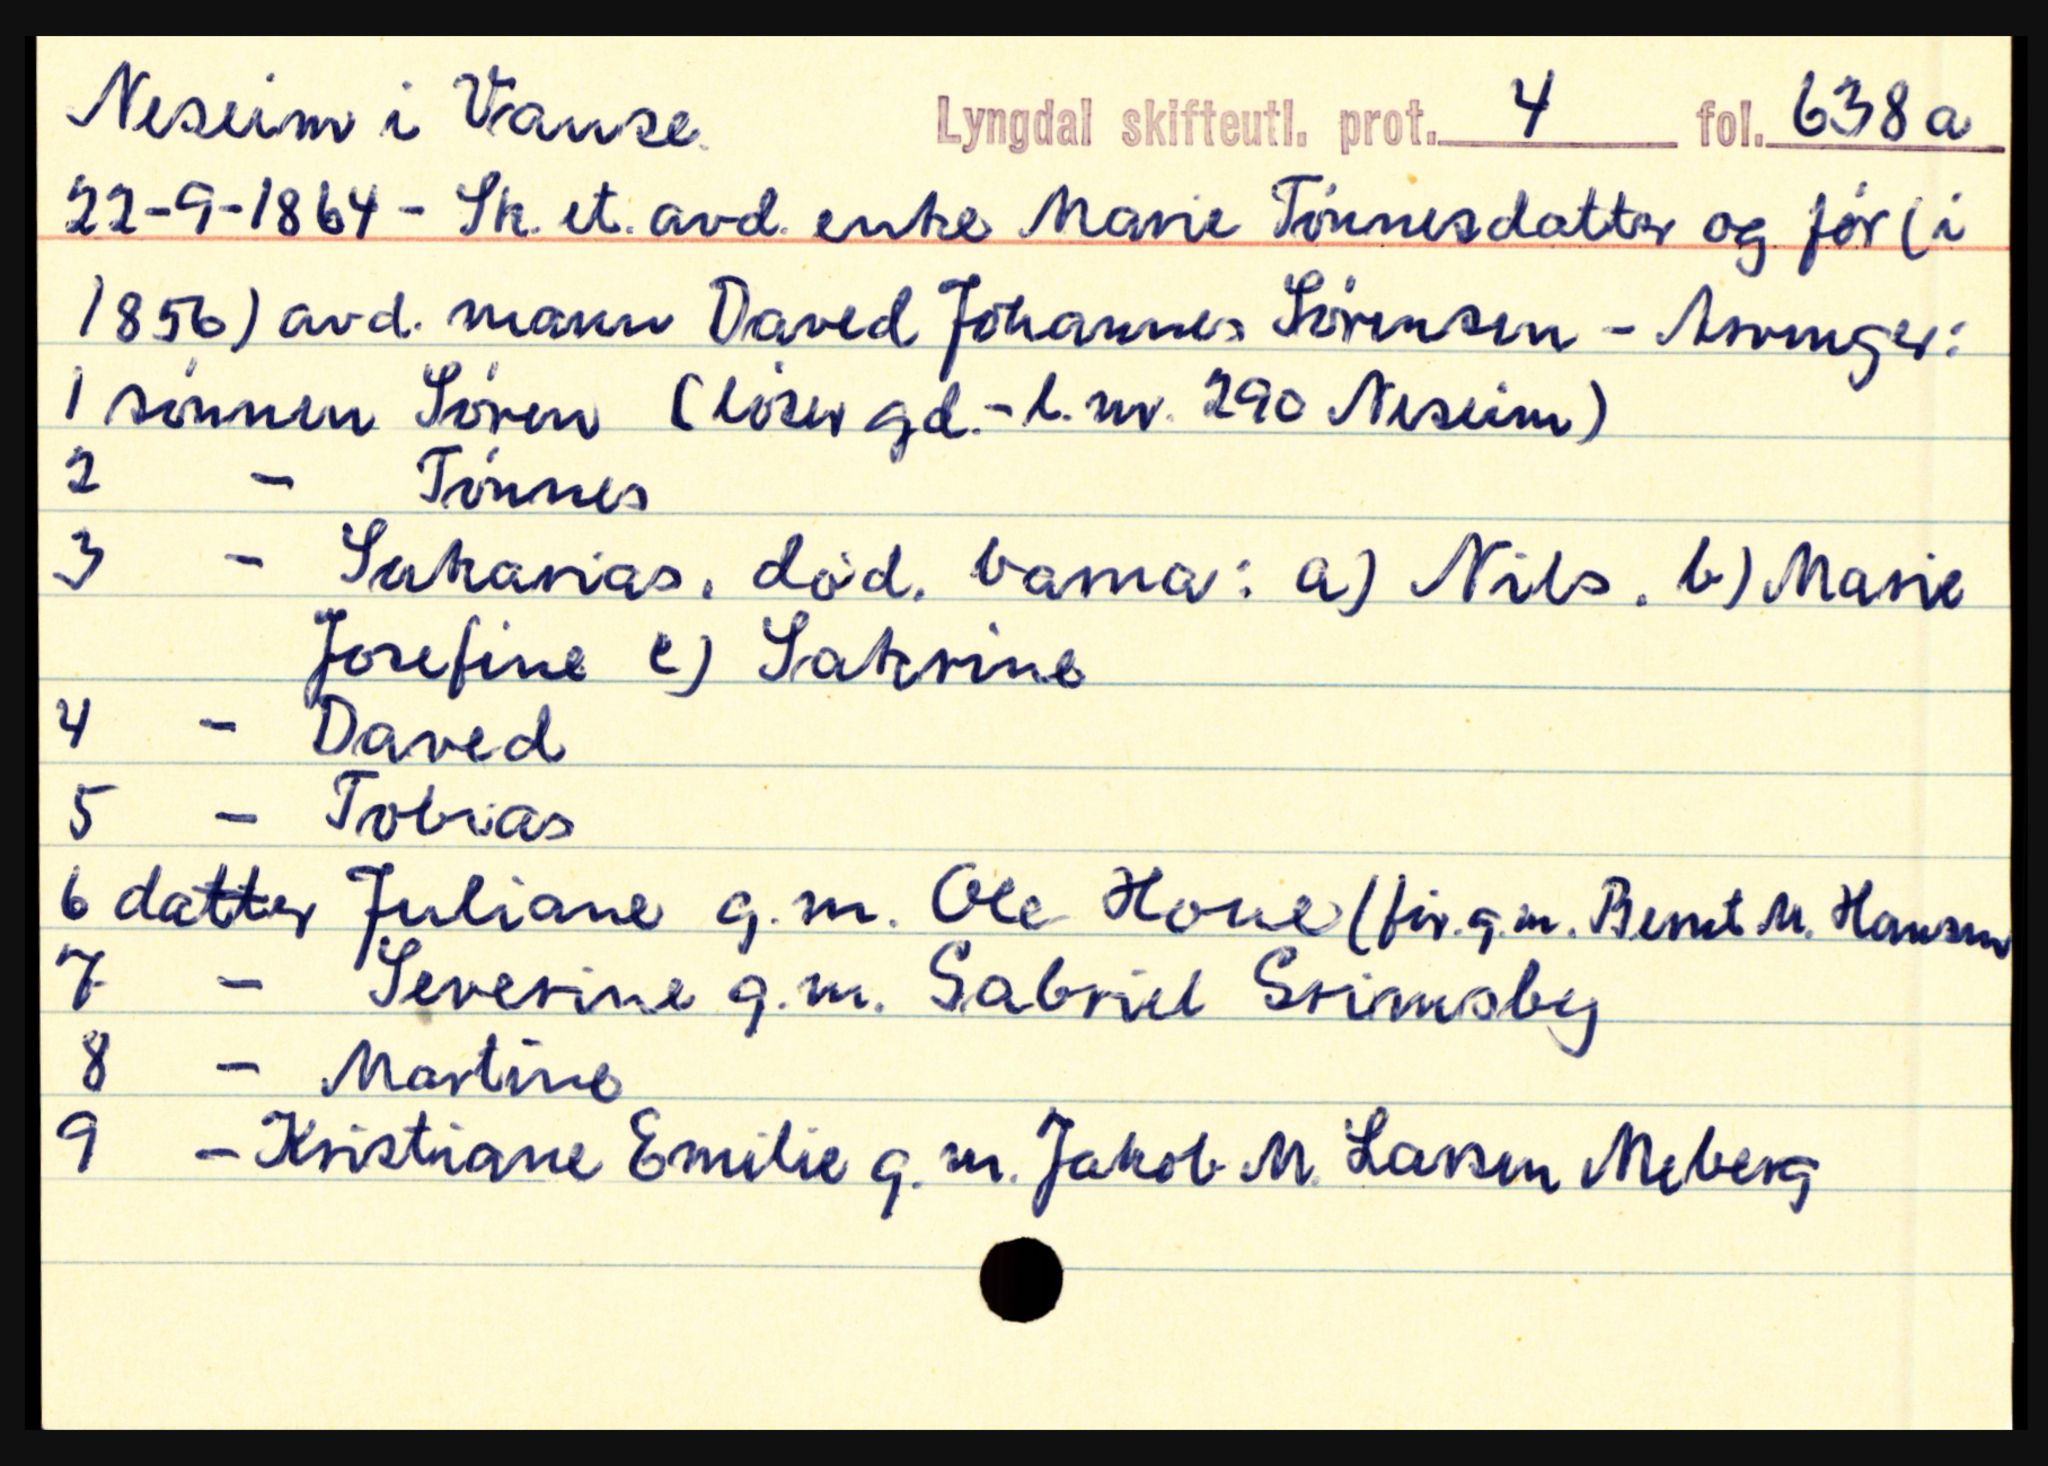 Neseim i Vanse. Lyngdal skifteutl. prot. 4 fol. 638a
22-9-1864 - Sk. et. avd. enke Marie Tønnesdatter og før (i
1856) avd. mann Daved Johannes Sørensen - Arvinger:
1 sønnen Søren (løser gd. - l. nr. 290 Neseim)
2 - Tønnes
3 - Sakarias. død. barna: a) Nils. b) Marie
Josefine c) Sakrine
4 - Daved
5 - Tobias
6 datter Juliane g.m. Ole Hove (før. g.m. Bernt M. Hansen
7 - Severine g.m. Gabriel Grimsby
8 - Martine
9 - Kristiane Emilie g.m. Jakob M. Larsen Meberg